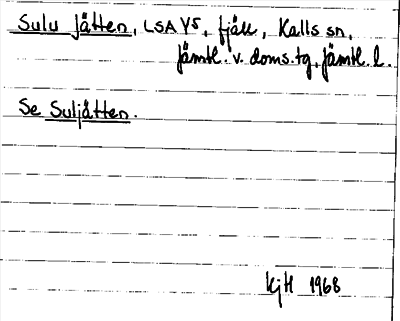 Sulu Jåtten, LSA Y5, fjäll, Kalls sn,
Jämtl. v. doms.tg, Jämtl. l.
Se Suljåtten.
KjH 1968